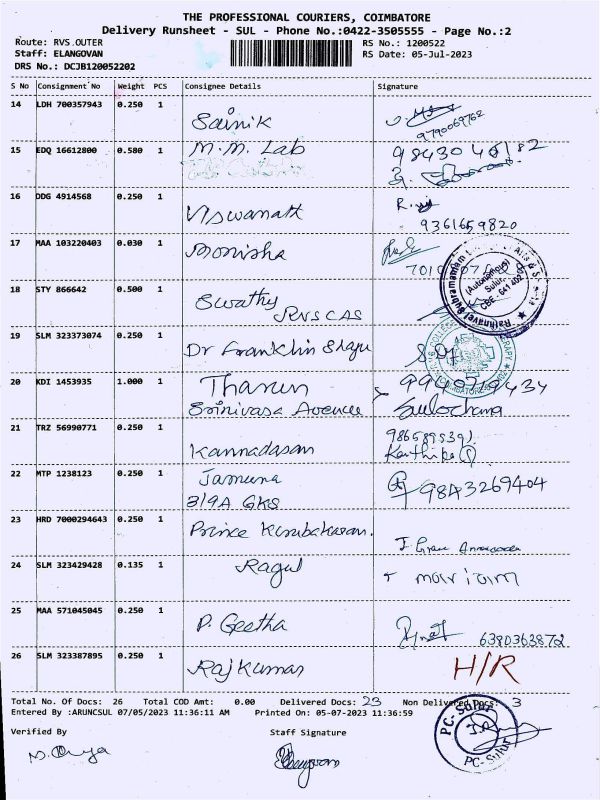 THE PROFESSIONAL COURIERS, COIMBATORE
Delivery Runsheet - SUL - Phone No.:0422-3505555 - Page No.:2
Route: RVS OUTER RS No.: 1200522
Staff: ELANGOVAN RS Date: 05-Jul-2023
DRS No.: DCJB120052202
S No Consignment No Weight PCS Consignee Details Signature
14 LDH 700357943 0.250 1 Sainik
9790069762
15 EDQ 16612800 0.580 1 M.M. Lab
16 DDG 4914568 0.250 1 Viswanath
9361659820
17 MAA 103220403 0.030 1 Monisha
18 STY 866642 0.500 1 Swathy
RVS CAS
19 SLM 323373074 0.250 1 Dr Franklin Shaju
20 KDI 1453935 1.000 1 Tharun 9940719434
Srinivasa Avenue Sulochana
21 TRZ 56990771 0.250 1 Kannadasan
Karthika
22 MTP 1238123 0.250 1 Jamuna 9843269404
3/9A GKS
23 HRD 7000294643 0.250 1 Prince Kirubakaran.
24 SLM 323429428 0.135 1 Ragul
25 MAA 571045045 0.250 1 P. Geetha
6380363872
26 SLM 323387895 0.250 1 Rajkumar H/R
Total No. Of Docs: 26 Total COD Amt: 0.00 Delivered Docs: 23 Non Delivered Docs: 3
Entered By :ARUNCSUL 07/05/2023 11:36:11 AM Printed On: 05-07-2023 11:36:59
Verified By Staff Signature
PC-Sulur
PC-Sulur